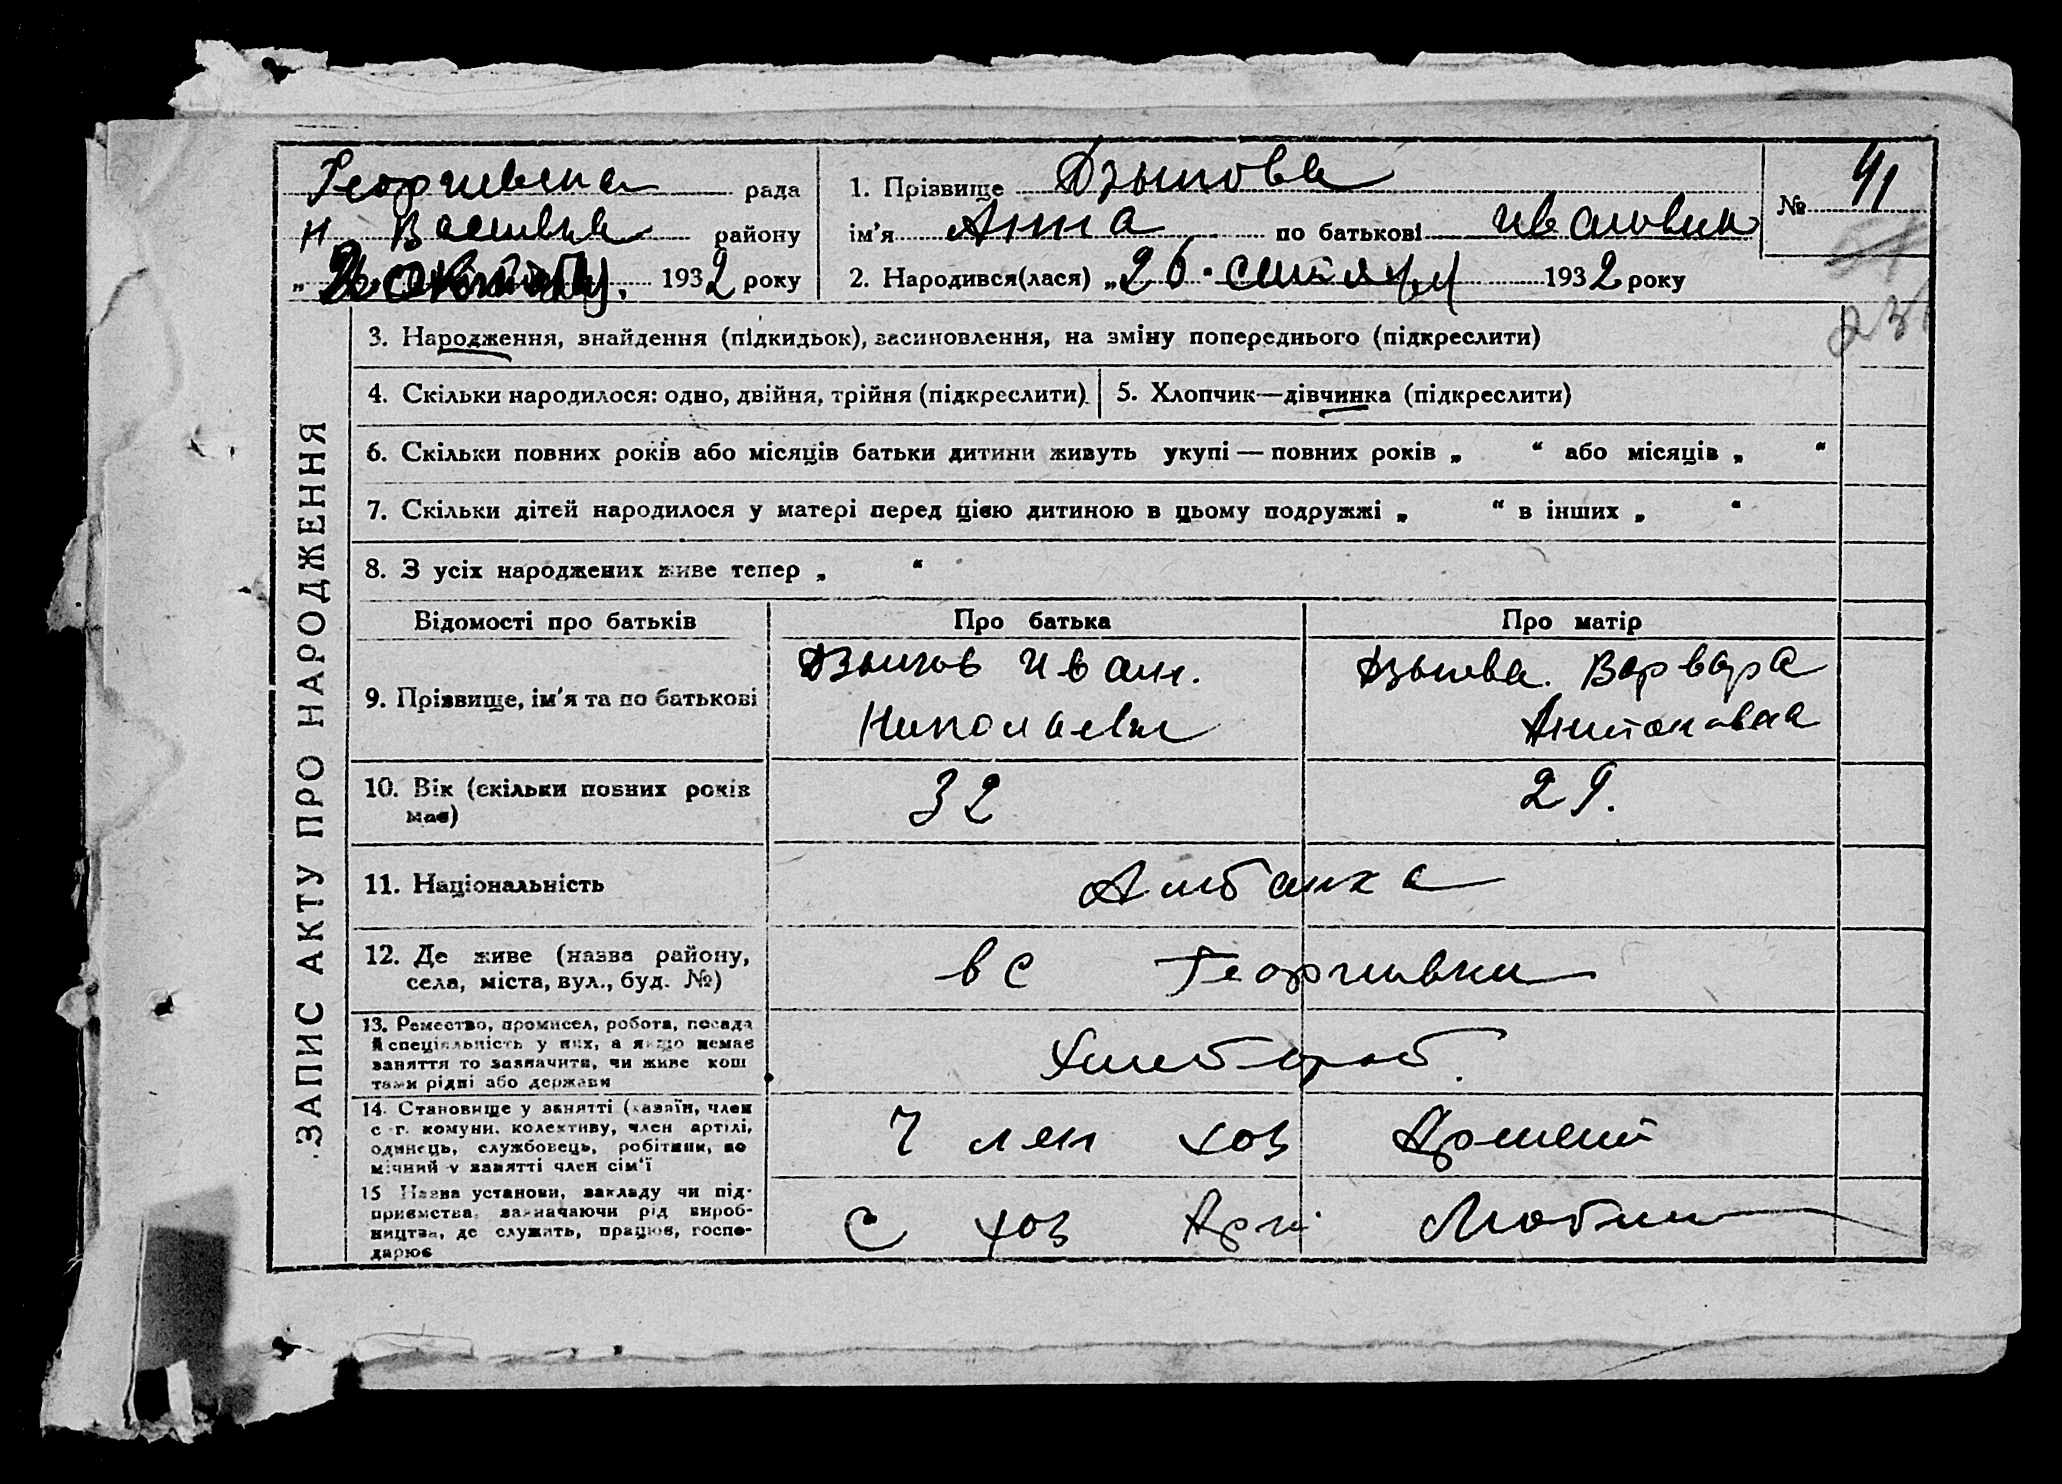 Георгиевка рада
Н Васильев району
„ 2 октября 1932 року
1. Прізвище Дзынова
ім'я Анна по батькові Ивановна
2. Народився(лася) „26 сентября 1932 року
№ 41
ЗАПИС АКТУ ПРО НАРОДЖЕННЯ
3. Народження, знайдення (підкидьок), засиновлення, на зміну попереднього (підкреслити)
4. Скільки народилося: одно, двійня, трійня (підкреслити)
5. Хлопчик—дівчинка (підкреслити)
6. Скільки повних років або місяців батьки дитини живуть укупі — повних років „ “ або місяців „ “
7. Скільки дітей народилося у матері перед цією дитиною в цьому подружжі „ “ в інших „ “
8. З усіх народжених живе тепер „ “
Відомості про батьків
Про батька
Про матір
9. Прізвище, ім'я та по батькові
Иван.
Николаевич
Варвара
Антоновна
10. Вік (скільки повних років має)
32
29.
11. Національність
Албанка
12. Де живе (назва району,
села, міста, вул., буд. №)
в с Георгиевки
13. Ремество, промисел, робота, посада
й спеціяльність у них, а якщо немає
заняття то зазначити, чи живе кош
тами рідні або держави
Хлебороб.
14. Становище у занятті (хазяїн, член
с.-г. комуни, колективу, член артілі,
одинець, службовець, робітник, по
мічний у занятті член сім'ї
Член хоз
15 Назва установи, закладу чи під-
приємства, зазначаючи рід вироб-
ництва, де служить, працює, госпо-
дарює
С хоз Арт